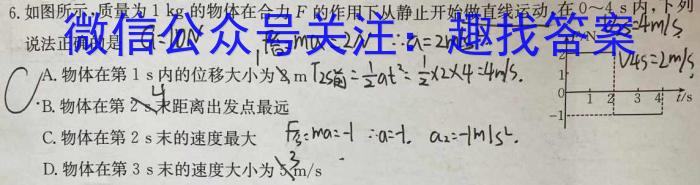 6.如图所示,质量为1 kg的物体在合力F的作用下从静止开始做直线运动,在0~4 s内,下列
说法正确的是
微信公众号关注:趣找答案
=4m/s.
V4s=2m/s
A.物体在第1 s内的位移大小为 m
=½at²=½×2×4=4m/s.
B.物体在第2 s末距离出发点最远
4
C.物体在第2 s末的速度最大
=ma=-1 ∴a=-1. a₂=-1m/s².
D.物体在第3 s末的速度大小为5 m/s
3
1
0 1 2 3 4 t/s
-1